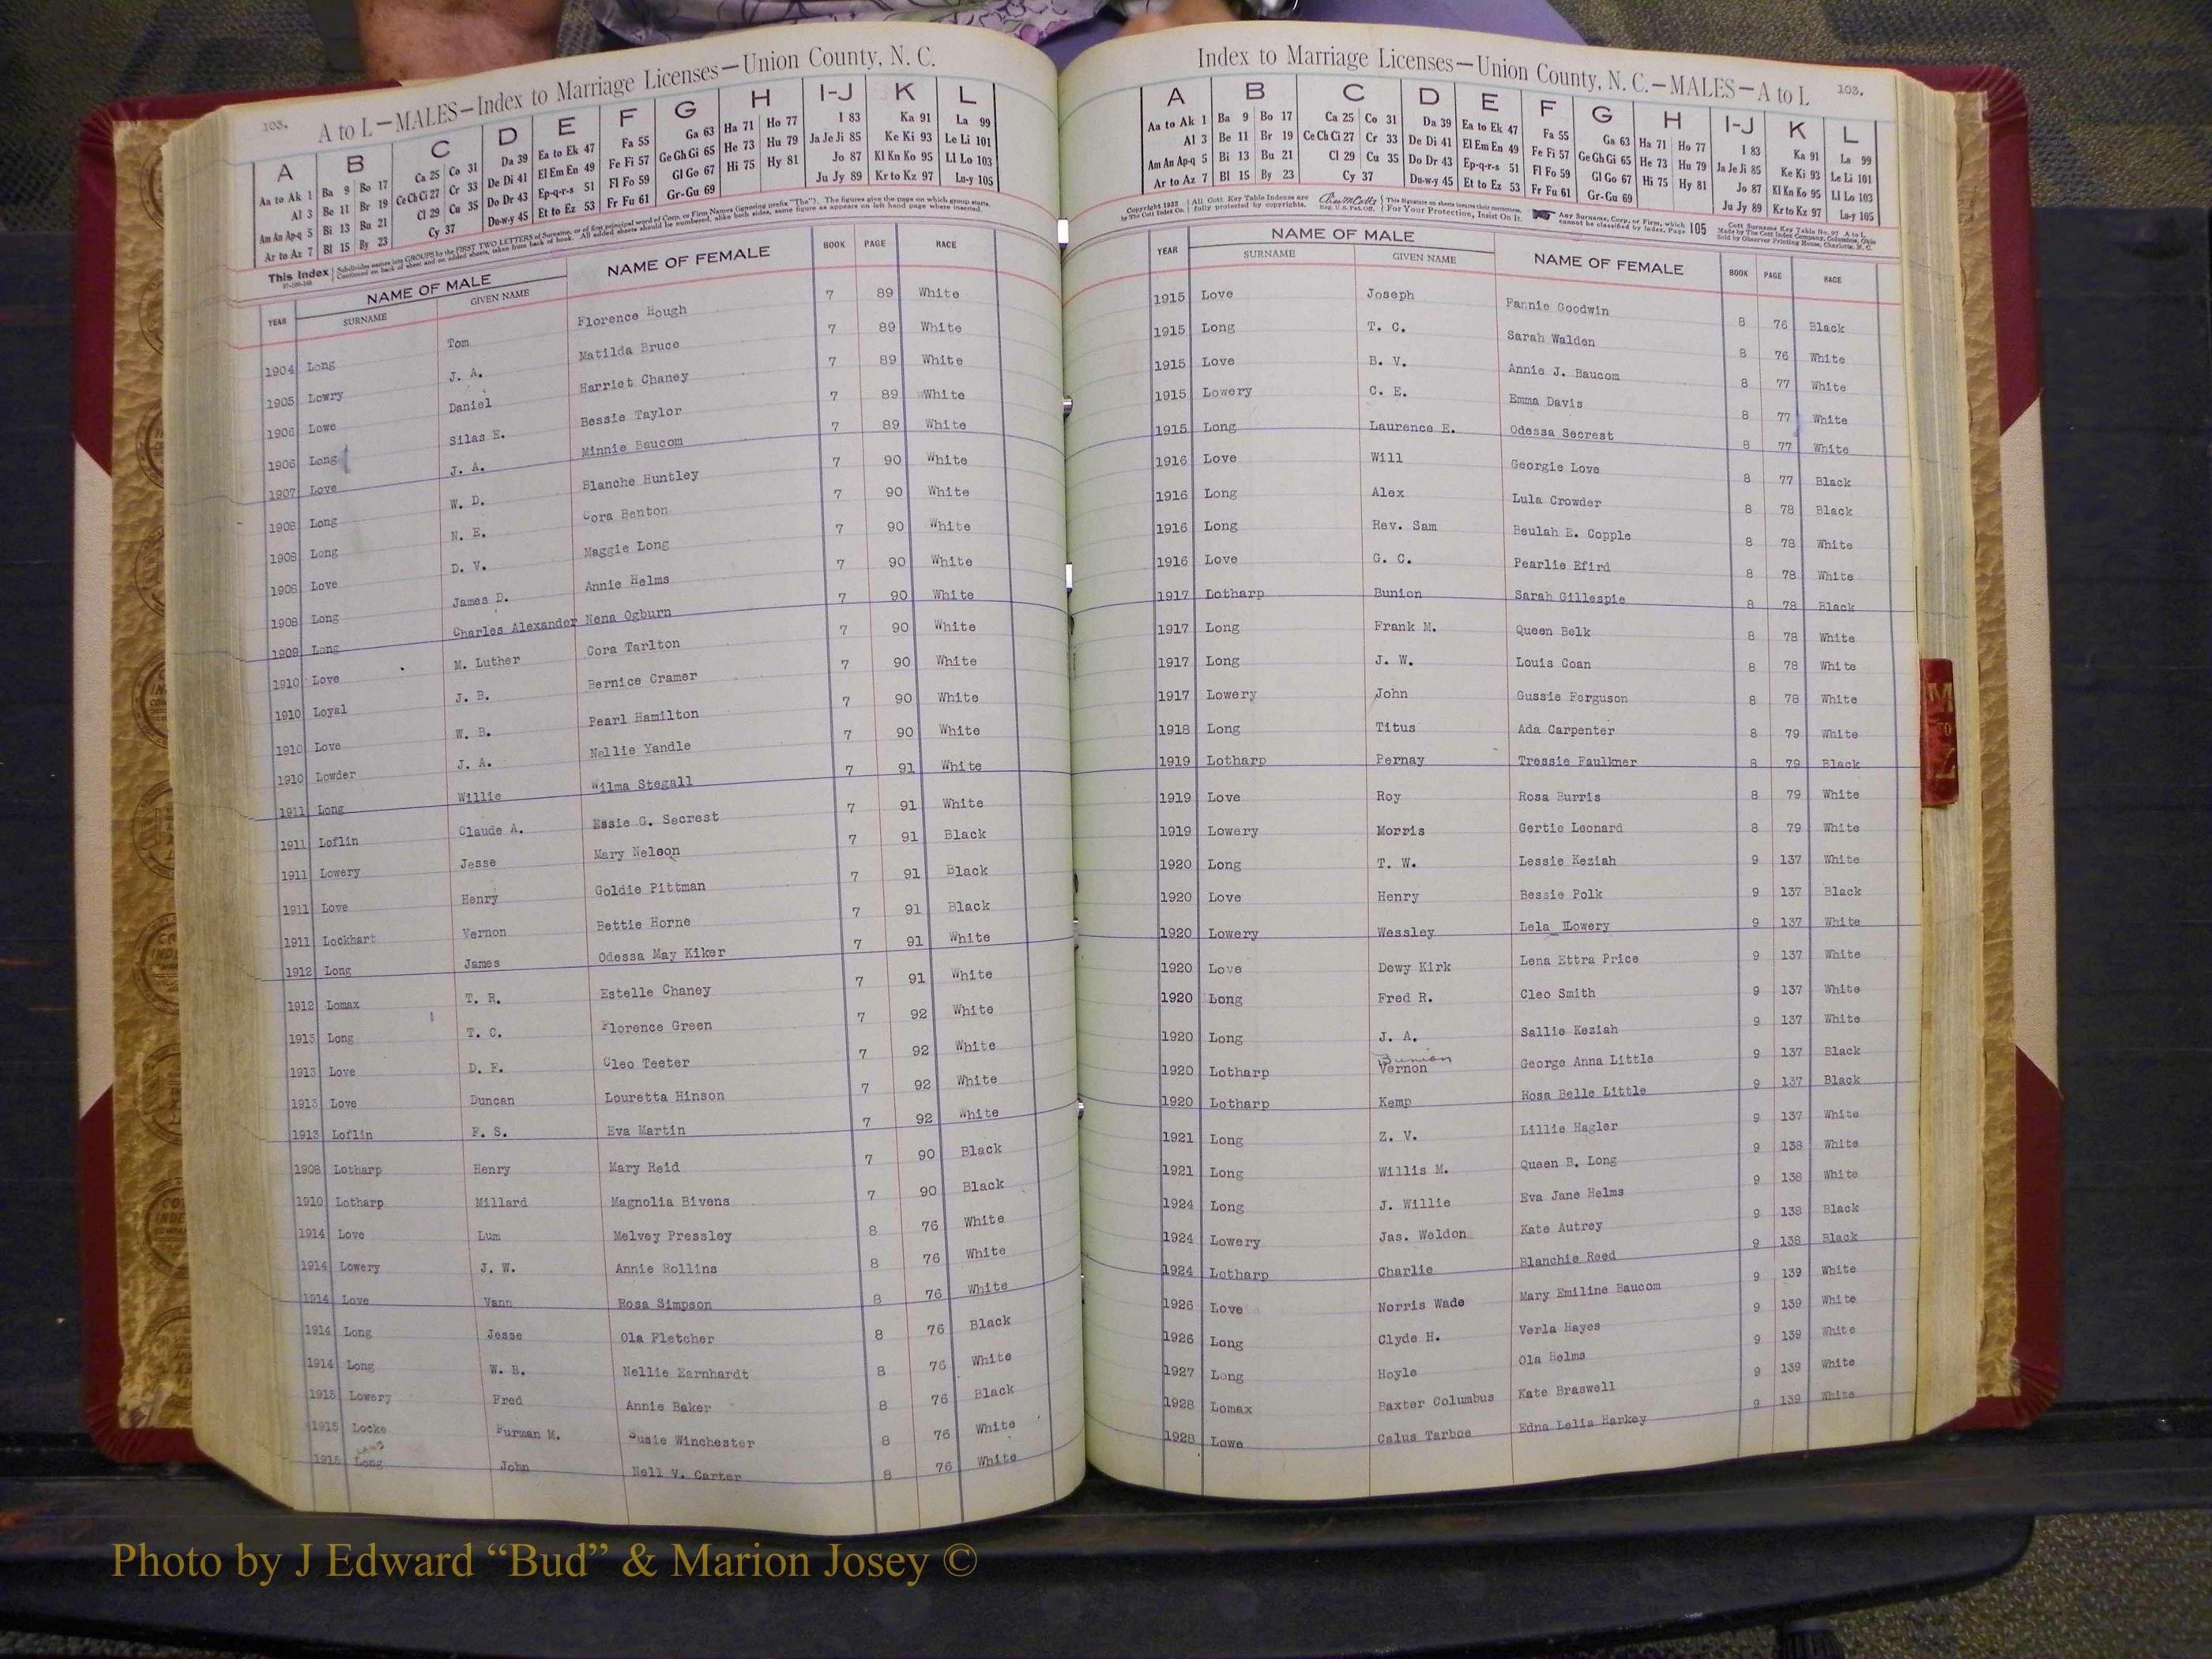 103.
A to L—MALES—Index to Marriage Licenses—Union County, N. C.
A B C D E F G H I-J K L
Aa to Ak 1 Ba 9 Bo 17 Ca 25 Co 31 Da 39 Ea to Ek 47 Fa 55 Ga 63 Ha 71 Ho 77 I 83 Ka 91 La 99
Al 3 Be 11 Br 19 Ce Ch Ci 27 Cr 33 De Di 41 El Em En 49 Fe Fi 57 Ge Gh Gi 65 He 73 Hu 79 Ja Je Ji 85 Ke Ki 93 Le Li 101
Am An Ap-q 5 Bi 13 Bu 21 Cl 29 Cu 35 Do Dr 43 Ep-q-r-s 51 Fl Fo 59 Gl Go 67 Hi 75 Hy 81 Jo 87 Kl Kn Ko 95 Ll Lo 103
Ar to Az 7 Bl 15 By 23 Cy 37 Du-w-y 45 Et to Ez 53 Fr Fu 61 Gr-Gu 69 Ju Jy 89 Kr to Kz 97 Lu-y 105
This Index Subdivides names into GROUPS by the FIRST TWO LETTERS of Surname, or of first principal word of Corp. or Firm Names (ignoring prefix "The"). The figures give the page on which group starts.
Continued on back of sheet and on added sheets, taken from back of book. All added sheets should be numbered, alike both sides, same figure as appears on left hand page where inserted.
YEAR NAME OF MALE NAME OF FEMALE BOOK PAGE RACE
SURNAME GIVEN NAME
1904 Long Tom Florence Hough 7 89 White
1905 Lowry J. A. Matilda Bruce 7 89 White
1906 Lowe Daniel Harriet Chaney 7 89 White
1906 Long Silas E. Bessie Taylor 7 89 White
1907 Love J. A. Minnie Baucom 7 89 White
1908 Long W. D. Blanche Huntley 7 90 White
1908 Long N. E. Cora Benton 7 90 White
1908 Love D. V. Maggie Long 7 90 White
1908 Long James D. Annie Helms 7 90 White
1909 Long Charles Alexander Nena Ogburn 7 90 White
1910 Love M. Luther Cora Tarlton 7 90 White
1910 Loyal J. B. Bernice Cramer 7 90 White
1910 Love W. B. Pearl Hamilton 7 90 White
1910 Lowder J. A. Nellie Yandle 7 90 White
1911 Long Willie Wilma Stegall 7 91 White
1911 Loflin Claude A. Essie G. Secrest 7 91 White
1911 Lowery Jesse Mary Nelson 7 91 Black
1911 Love Henry Goldie Pittman 7 91 Black
1911 Lockhart Vernon Bettie Horne 7 91 Black
1912 Long James Odessa May Kiker 7 91 White
1912 Lomax T. R. Estelle Chaney 7 91 White
1913 Long T. C. Florence Green 7 92 White
1913 Love D. F. Cleo Teeter 7 92 White
1913 Love Duncan Louretta Hinson 7 92 White
1913 Loflin F. S. Eva Martin 7 92 White
1908 Lotharp Henry Mary Reid 7 90 Black
1910 Lotharp Millard Magnolia Bivens 7 90 Black
1914 Love Lum Melvey Pressley 8 76 White
1914 Lowery J. W. Annie Rollins 8 76 White
1914 Love Vann Rosa Simpson 8 76 White
1914 Long Jesse Ola Fletcher 8 76 Black
1914 Long W. B. Nellie Earnhardt 8 76 White
1915 Lowery Fred Annie Baker 8 76 Black
1915 Locke Furman M. Susie Winchester 8 76 White
1915 Long John Nell V. Carter 8 76 White
Index to Marriage Licenses—Union County, N. C.—MALES—A to L 103.
A B C D E F G H I-J K L
Aa to Ak 1 Ba 9 Bo 17 Ca 25 Co 31 Da 39 Ea to Ek 47 Fa 55 Ga 63 Ha 71 Ho 77 I 83 Ka 91 La 99
Al 3 Be 11 Br 19 Ce Ch Ci 27 Cr 33 De Di 41 El Em En 49 Fe Fi 57 Ge Gh Gi 65 He 73 Hu 79 Ja Je Ji 85 Ke Ki 93 Le Li 101
Am An Ap-q 5 Bi 13 Bu 21 Cl 29 Cu 35 Do Dr 43 Ep-q-r-s 51 Fl Fo 59 Gl Go 67 Hi 75 Hy 81 Jo 87 Kl Kn Ko 95 Ll Lo 103
Ar to Az 7 Bl 15 By 23 Cy 37 Du-w-y 45 Et to Ez 53 Fr Fu 61 Gr-Gu 69 Ju Jy 89 Kr to Kz 97 Lu-y 105
Copyright 1932 All Cott Key Table Indexes are This Signature on sheets insures their correctness. Any Surname, Corp. or Firm, which Cott Surname Key Table No. 97 A to L
by The Cott Index Co. fully protected by copyrights. Reg. U.S. Pat. Off. For Your Protection, Insist On It. cannot be classified by Index, Page 105 Made by The Cott Index Company, Columbus, Ohio
Sold by Observer Printing House, Charlotte, N. C.
YEAR NAME OF MALE NAME OF FEMALE BOOK PAGE RACE
SURNAME GIVEN NAME
1915 Love Joseph Fannie Goodwin 8 76 Black
1915 Long T. C. Sarah Walden 8 76 White
1915 Love B. V. Annie J. Baucom 8 77 White
1915 Lowery C. E. Emma Davis 8 77 White
1915 Long Laurence E. Odessa Secrest 8 77 White
1916 Love Will Georgie Love 8 77 Black
1916 Long Alex Lula Crowder 8 78 Black
1916 Long Rev. Sam Beulah E. Copple 8 78 White
1916 Love G. C. Pearlie Efird 8 78 White
1917 Lotharp Bunion Sarah Gillespie 8 78 Black
1917 Long Frank M. Queen Belk 8 78 White
1917 Long J. W. Louis Coan 8 78 White
1917 Lowery John Gussie Ferguson 8 78 White
1918 Long Titus Ada Carpenter 8 79 White
1919 Lotharp Pernay Tressie Faulkner 8 79 Black
1919 Love Roy Rosa Burris 8 79 White
1919 Lowery Morris Gertie Leonard 8 79 White
1920 Long T. W. Lessie Keziah 9 137 White
1920 Love Henry Bessie Polk 9 137 Black
1920 Lowery Wessley Lela Lowery 9 137 White
1920 Love Dewy Kirk Lena Ettra Price 9 137 White
1920 Long Fred R. Cleo Smith 9 137 White
1920 Long J. A. Sallie Keziah 9 137 White
Bunion
1920 Lotharp Vernon George Anna Little 9 137 Black
1920 Lotharp Kemp Rosa Belle Little 9 137 Black
1921 Long Z. V. Lillie Hagler 9 137 White
1921 Long Willis M. Queen B. Long 9 138 White
1924 Long J. Willie Eva Jane Helms 9 138 White
1924 Lowery Jas. Weldon Kate Autrey 9 138 Black
1924 Lotharp Charlie Blanchie Reed 9 138 Black
1926 Love Norris Wade Mary Emiline Baucom 9 139 White
1926 Long Clyde H. Verla Hayes 9 139 White
1927 Long Hoyle Ola Helms 9 139 White
1928 Lomax Baxter Columbus Kate Braswell 9 139 White
1928 Lowe Calus Tarboe Edna Lelia Harkey 9 139 White
M
TO
Z
Photo by J Edward “Bud” & Marion Josey ©